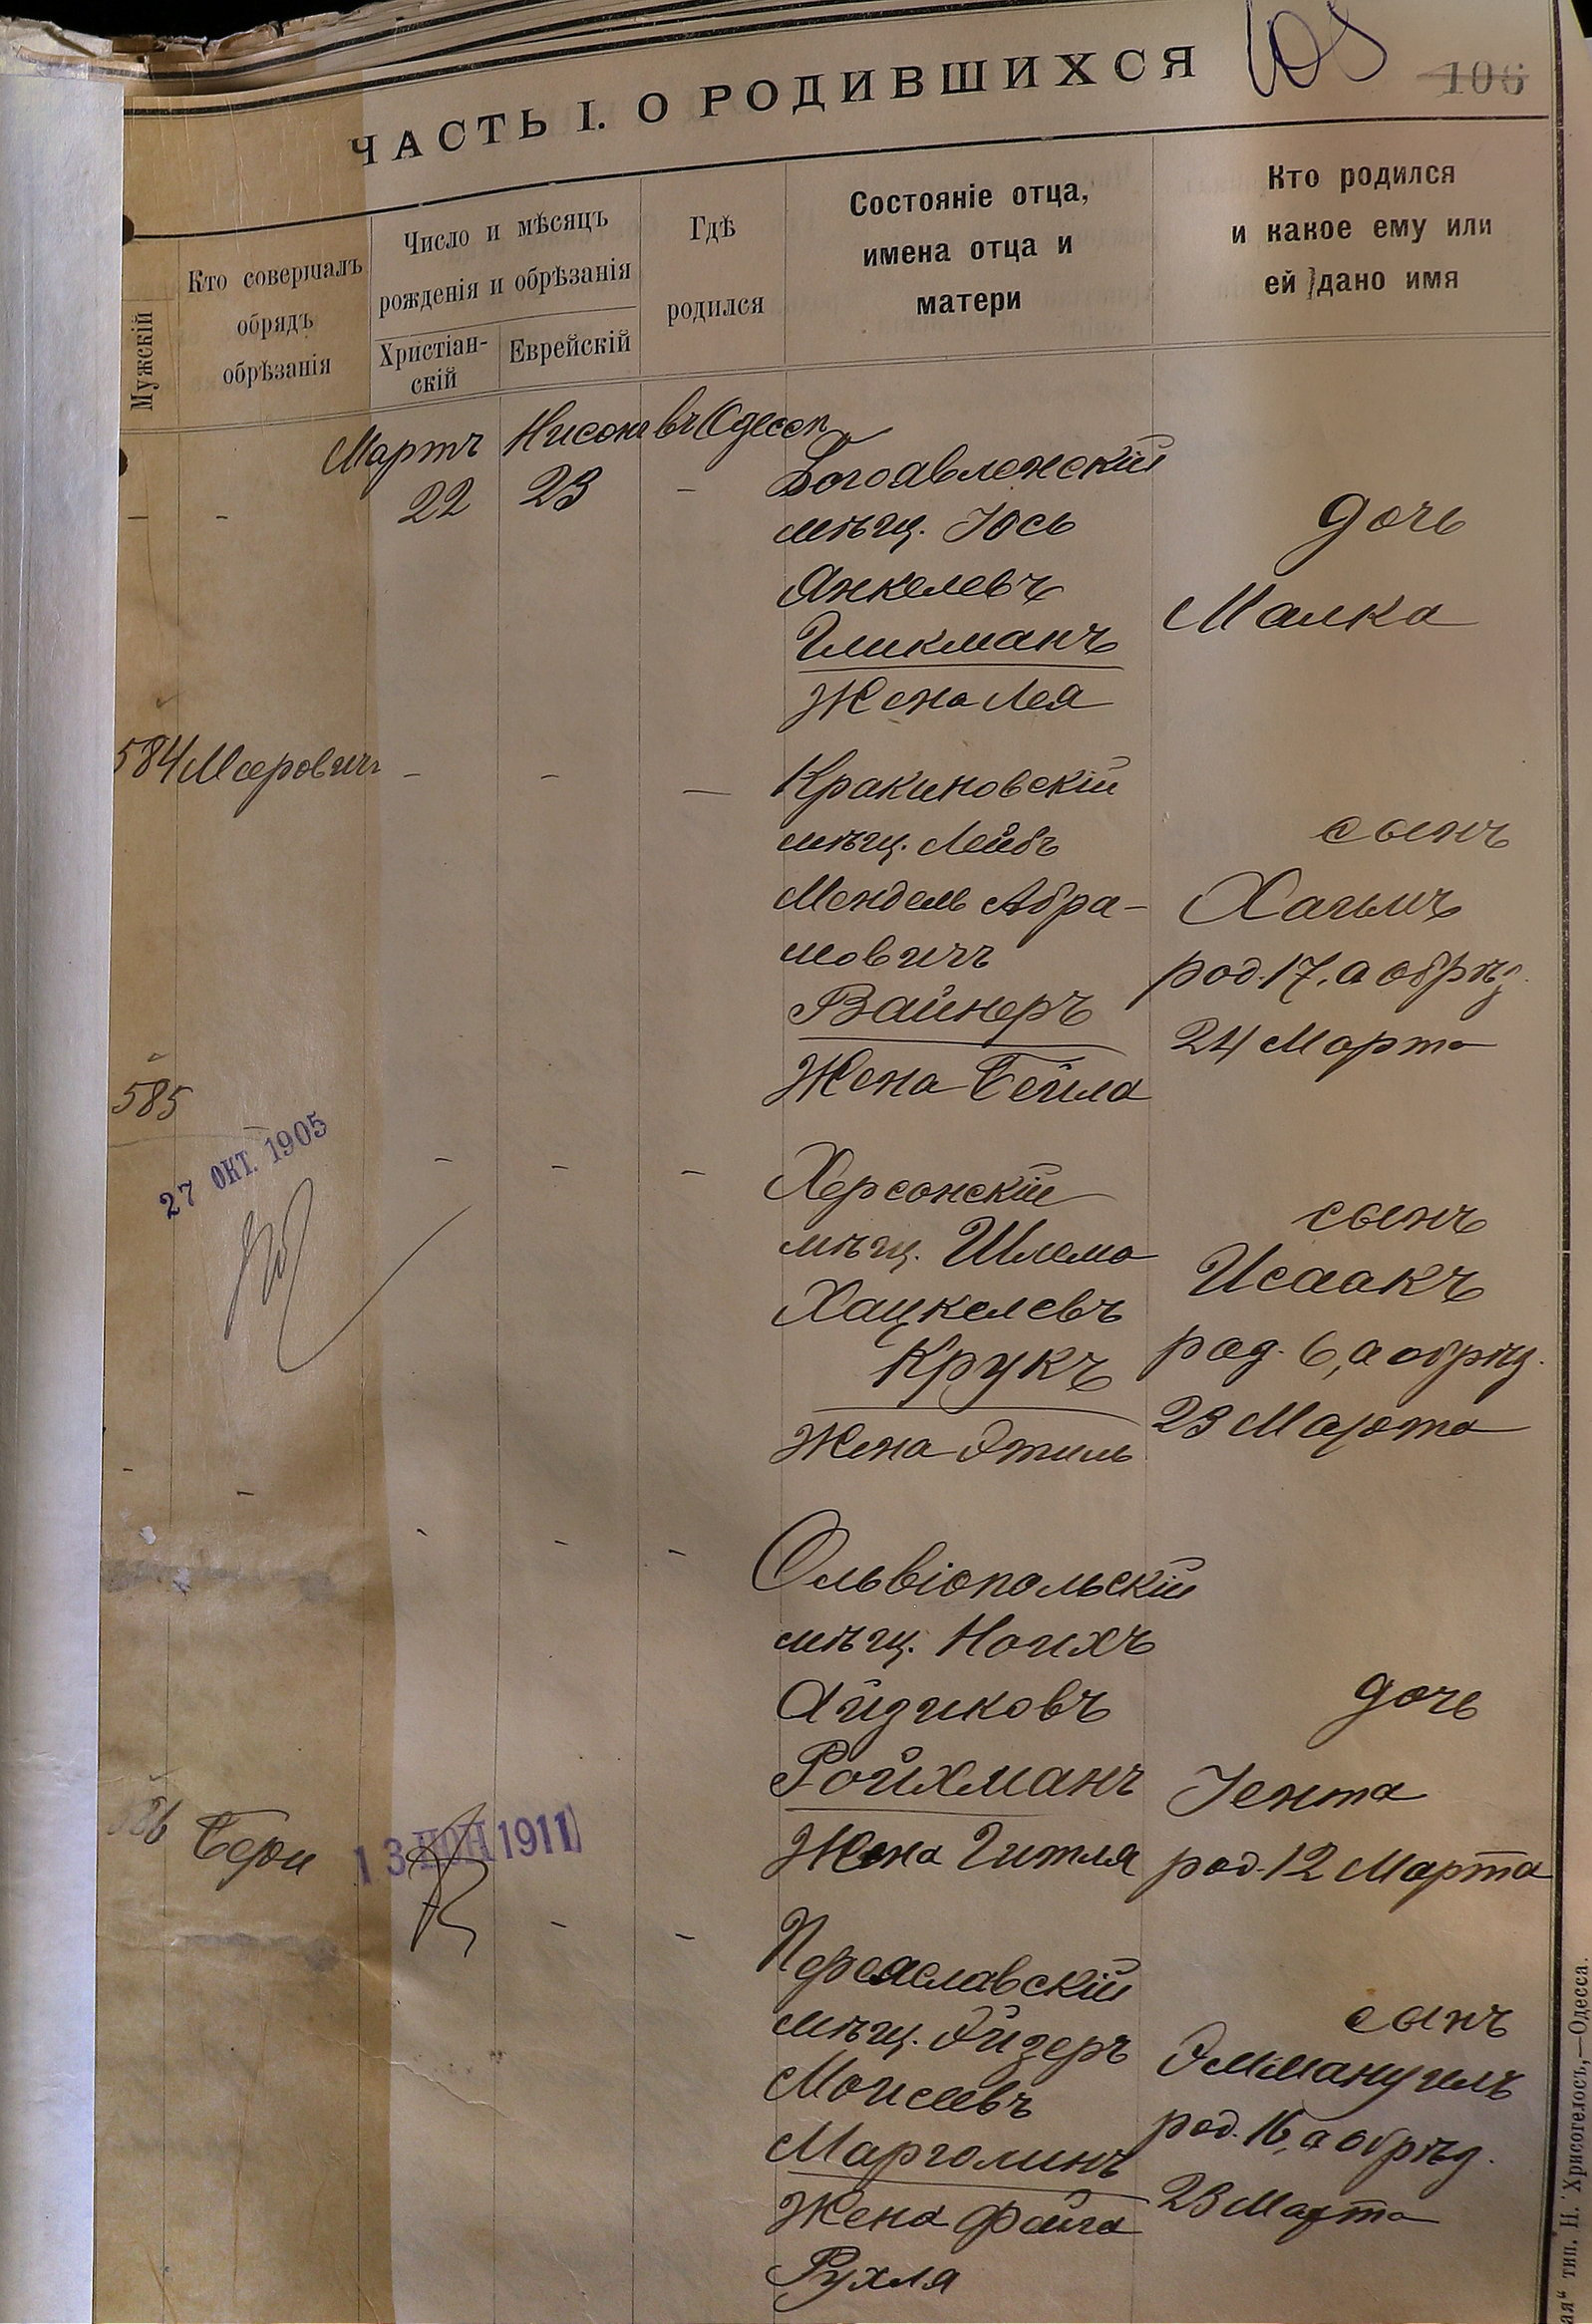 105
106
ЧАСТЬ I. О РОДИВШИХСЯ
Мужскій
Кто совершалъ
обрядъ
обрѣзанія
Число и мѣсяцъ
рожденія и обрѣзанія
Христіан-
скій
Еврейскій
Гдѣ
родился
Состояніе отца,
имена отца и
матери
Кто родился
и какое ему или
ей дано имя
Мартъ
22
Нисона
23
въ Одессѣ
-
-
-
Богоявленскій
мѣщ. Юсь
Янкелевъ
Гликманъ
Жена Лея
дочь
Малка
584
Меерович
-
-
-
Кракиновскій
мѣщ. Лейбъ
Мендель Абра-
мовичъ
Вайнеръ
Жена Бейла
сынъ
Хаимъ
род. 17, а обрѣз.
24 Марта
585
27 ОКТ. 1905
-
-
-
Херсонскій
мѣщ. Шлема
Хацкелевъ
Крукъ
Жена Этиль
сынъ
Исаакъ
род. 6, а обрѣз.
23 Марта
-
-
-
-
-
Ольвіопольскій
мѣщ. Ноихъ
Айзиковъ
Ройхманъ
Жена Гитля
дочь
Іента
род. 12 Марта
586
Бери
13 ІЮН 1911
-
-
Переяславскій
мѣщ. Эйзеръ
Моисеевъ
Марголинъ
Жена Файга
Рухля
сынъ
Эммануилъ
род. 16, а обрѣз.
23 Марта
ая“ тип. Н. Хрисогелосъ,—Одесса.